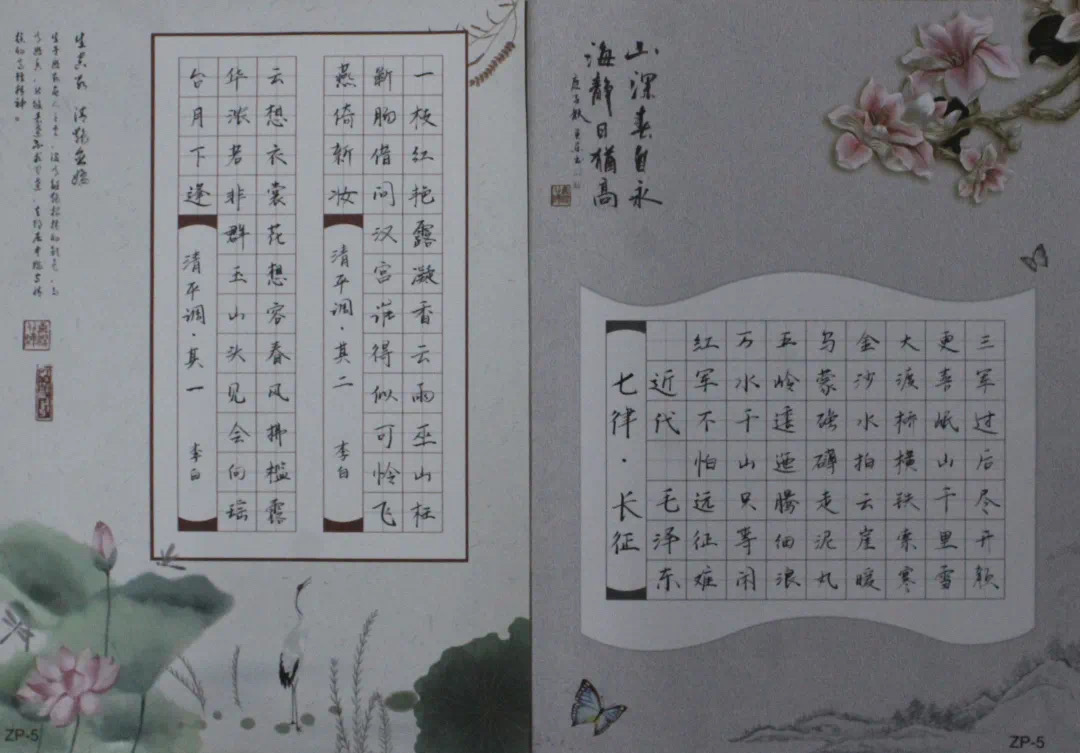 云想衣裳花想容春风拂槛露
华浓若非群玉山头见会向瑶
台月下逢
清平调·其一 李白
一枝红艳露凝香云雨巫山枉
断肠借问汉宫谁得似可怜飞
燕倚新妆
清平调·其二 李白
ZP-5
山深春自永
海静日猶高
七律·长征
近代 毛泽东
红军不怕远征难
万水千山只等闲
五岭逶迤腾细浪
乌蒙磅礴走泥丸
金沙水拍云崖暖
大渡桥横铁索寒
更喜岷山千里雪
三军过后尽开颜
ZP-5